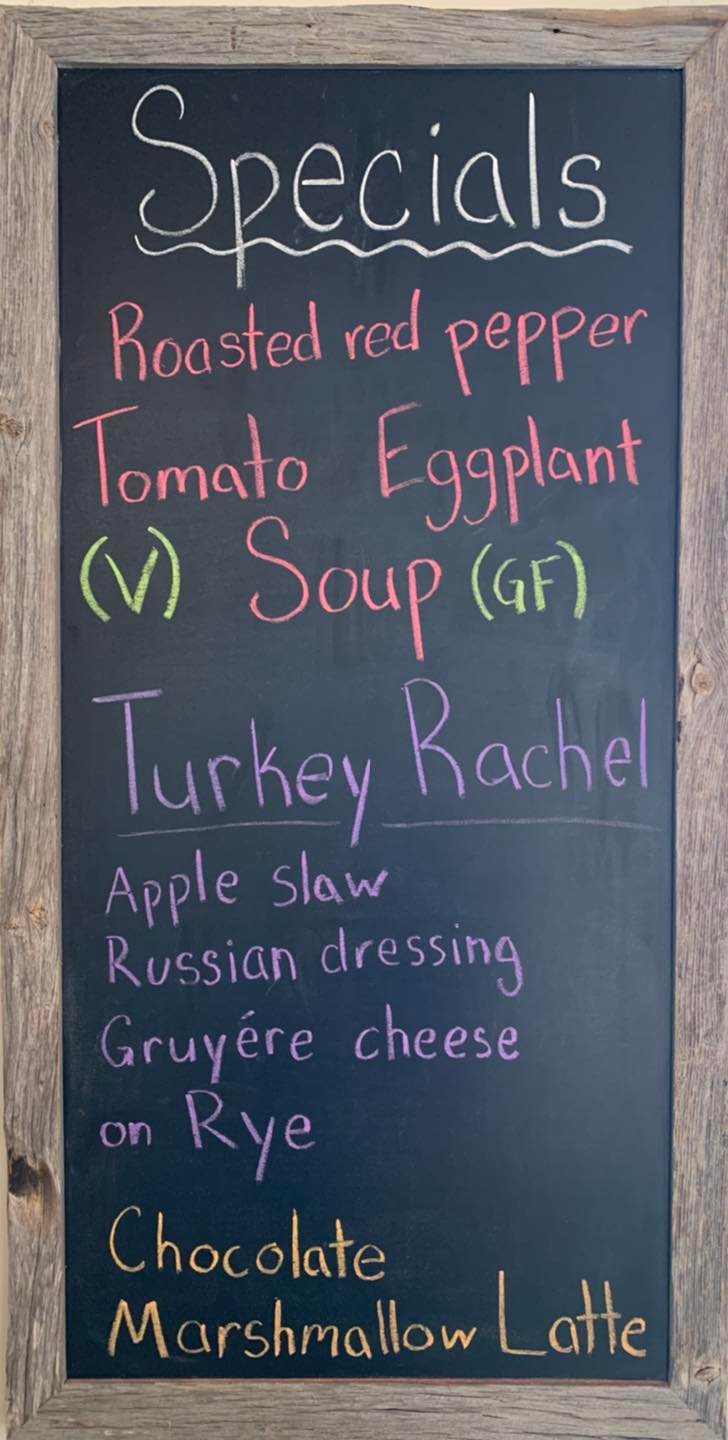 Specials
Roasted red pepper
Tomato Eggplant
(V) Soup (GF)
Turkey Rachel
Apple slaw
Russian dressing
Gruyére cheese
on Rye
Chocolate
Marshmallow Latte